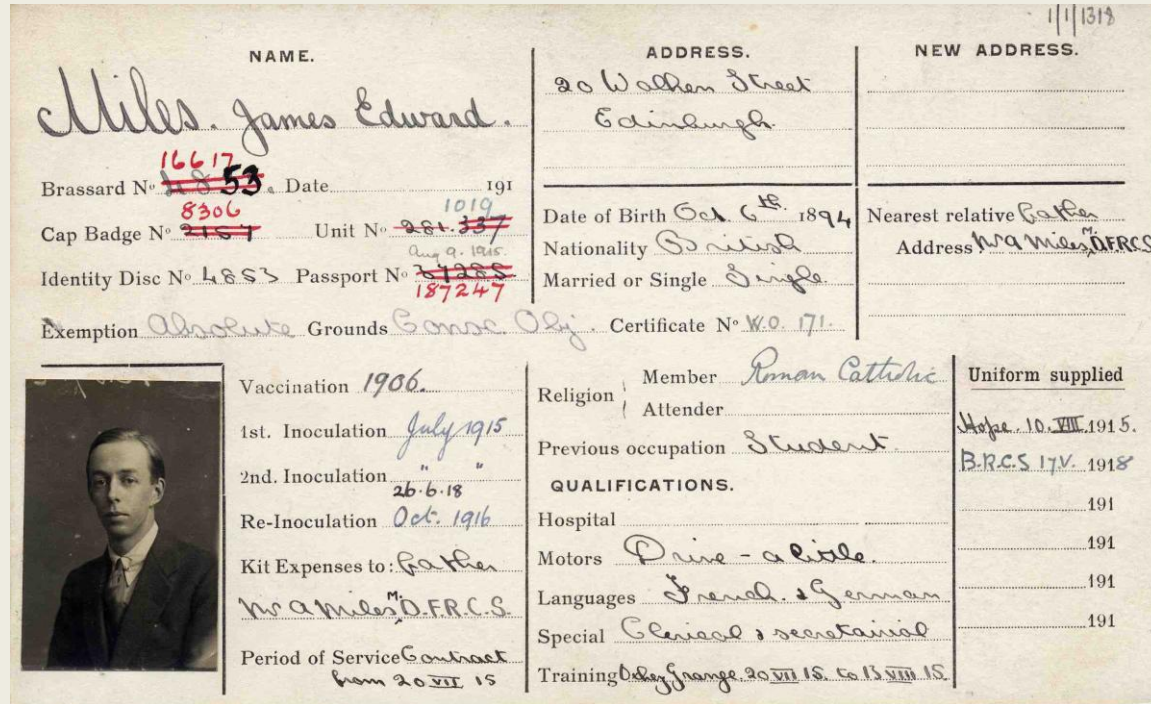 1/1/1318
NAME.
Miles. James Edward.
16617
Brassard No 53. Date 191
8306 1019
Cap Badge No 2157 Unit No 281.337
Aug 9. 1915.
Identity Disc No 4853 Passport No
187247
Exemption Absolute Grounds Consc Obj. Certificate No W.O. 171.
ADDRESS.
20 Street
Edinburgh.
Date of Birth Oct. 6th. 1894
Nationality British
Married or Single Single.
NEW ADDRESS.
Nearest relative Father
Address Mr A Miles, M.D.F.R.C.S
Vaccination 1906.
1st. Inoculation July 1915
2nd. Inoculation " "
26.6.18
Re-Inoculation Oct. 1916
Kit Expenses to: Father
Mr A Miles, M.D.F.R.C.S.
Period of Service Contract
from 20 VII 15
Religion Member Roman Catholic
Attender
Previous occupation Student.
QUALIFICATIONS.
Hospital
Motors Drive - a little.
Languages French & German
Special Clerical & secretarial
Training Grange. 20 VII 15. to 13 VIII 15.
Uniform supplied
Hope. 10. VIII. 1915.
B.R.C.S 17.V. 1918
191
191
191
191